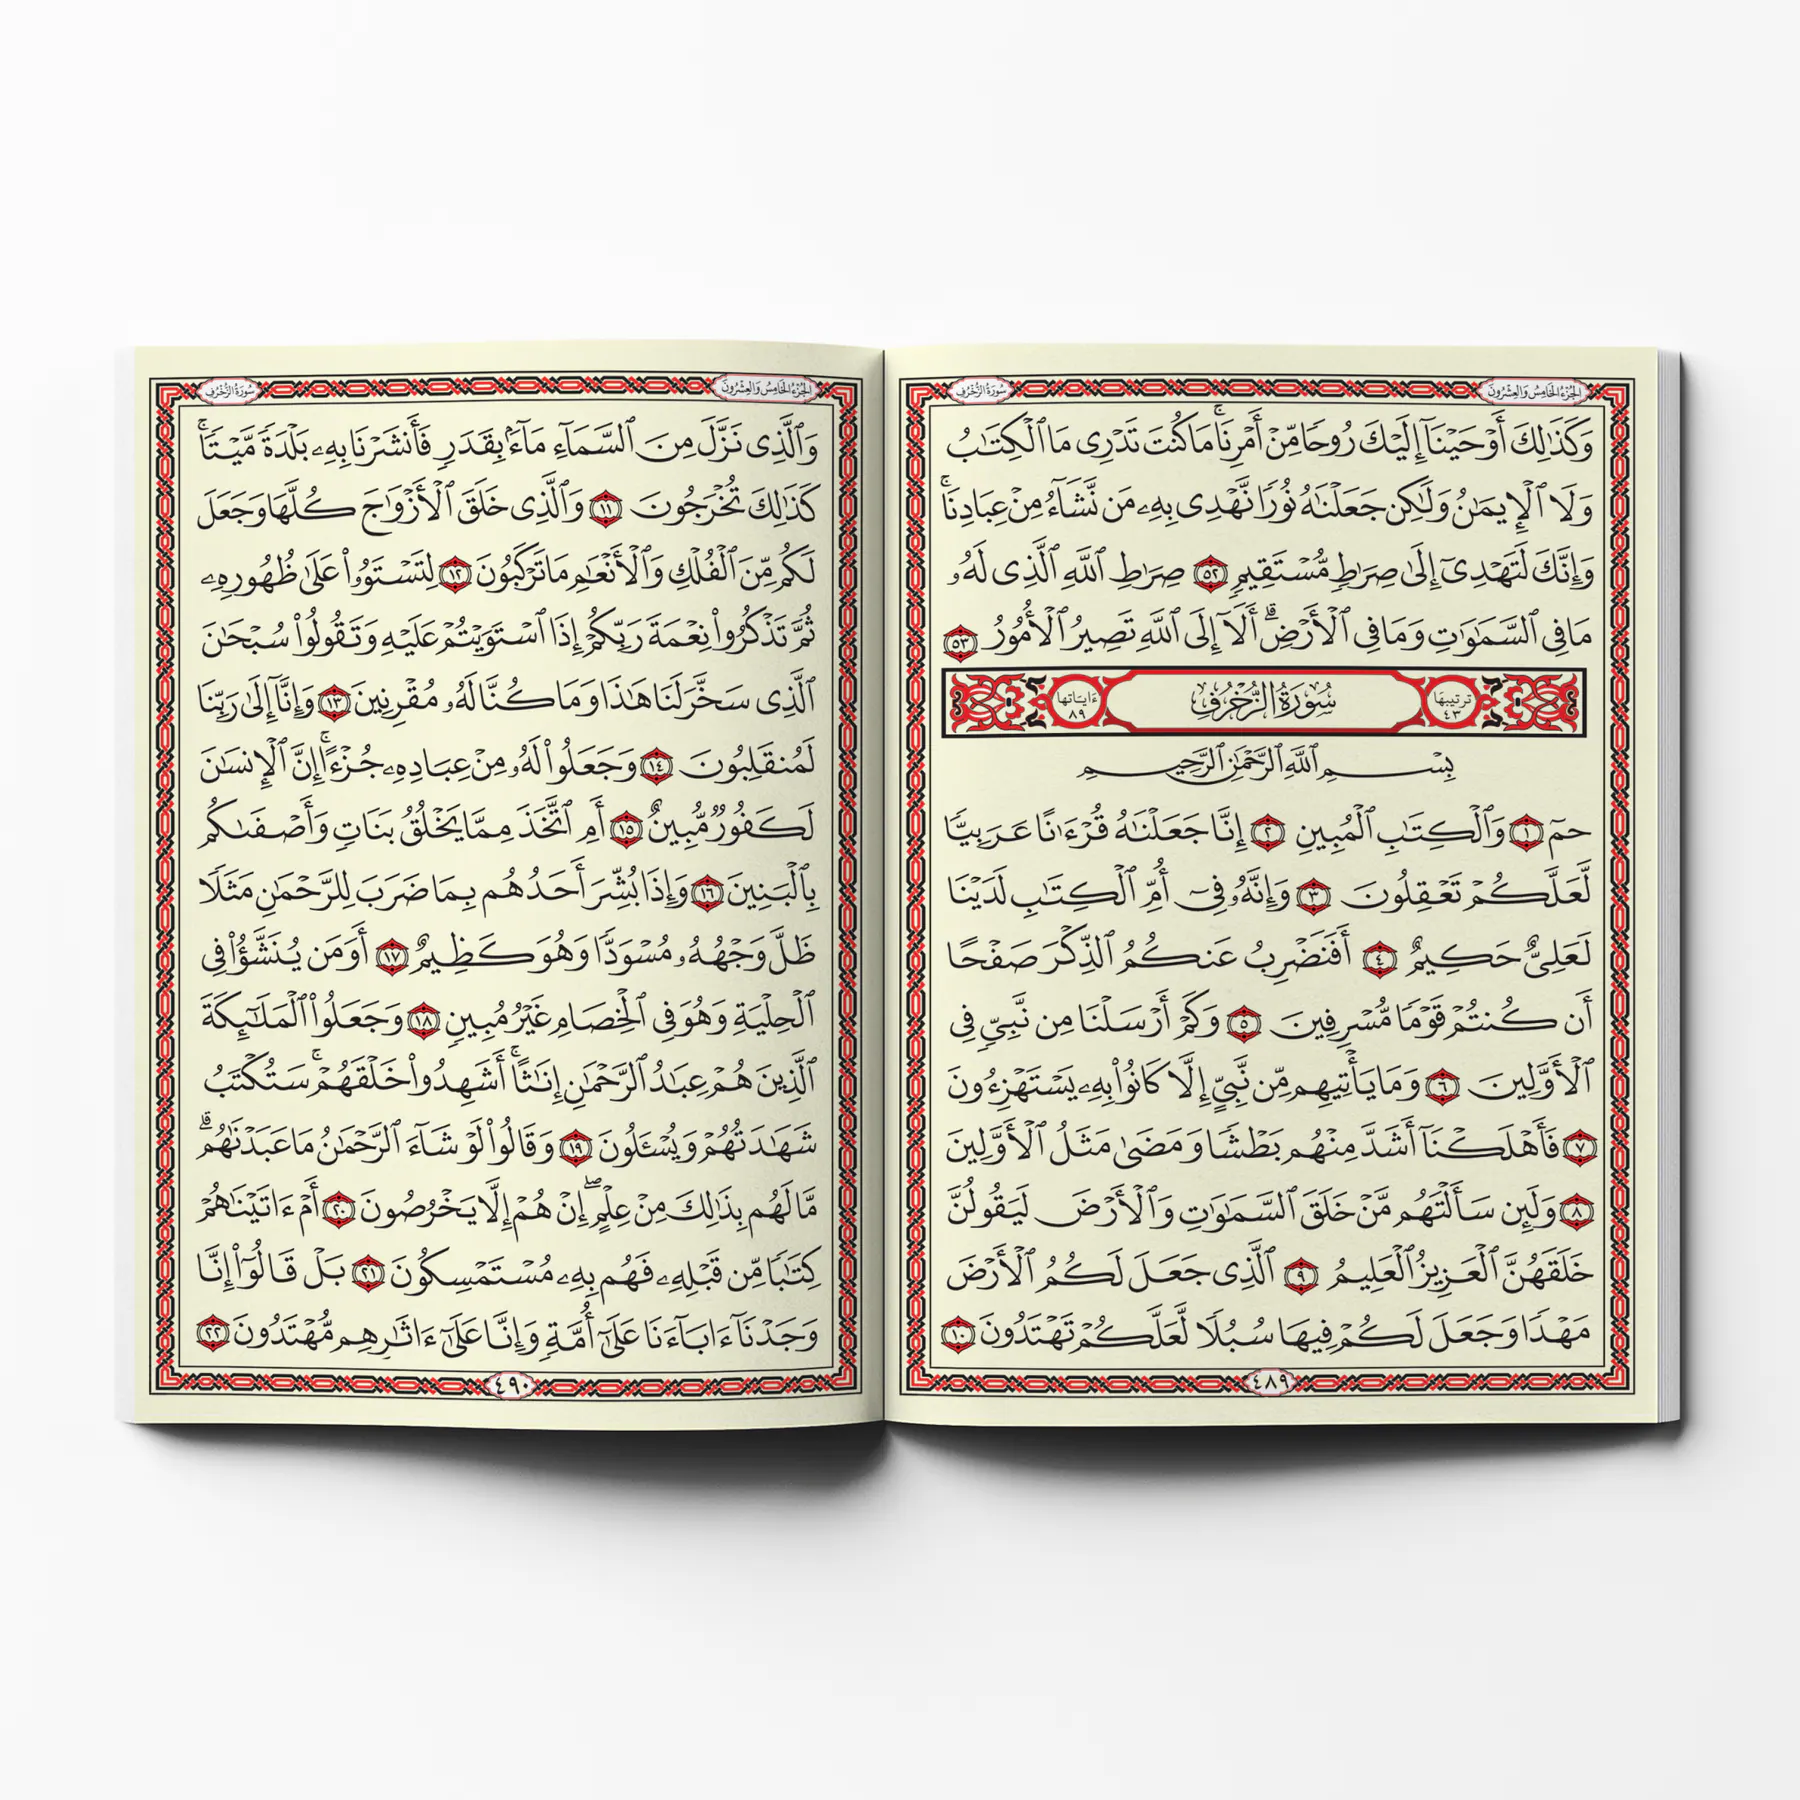 الجزء الخامس والعشرون
سورة الزخرف
وَكَذَٰلِكَ أَوۡحَيۡنَآ إِلَيۡكَ رُوحٗا مِّنۡ أَمۡرِنَاۚ مَا كُنتَ تَدۡرِي مَا ٱلۡكِتَٰبُ
وَلَا ٱلۡإِيمَٰنُ وَلَٰكِن جَعَلۡنَٰهُ نُورٗا نَّهۡدِي بِهِۦ مَن نَّشَآءُ مِنۡ عِبَادِنَاۚ
وَإِنَّكَ لَتَهۡدِيٓ إِلَىٰ صِرَٰطٖ مُّسۡتَقِيمٖ ٥٢ صِرَٰطِ ٱللَّهِ ٱلَّذِي لَهُۥ
مَا فِي ٱلسَّمَٰوَٰتِ وَمَا فِي ٱلۡأَرۡضِۗ أَلَآ إِلَى ٱللَّهِ تَصِيرُ ٱلۡأُمُورُ ٥٣
ترتيبها ٤٣ سُورَةُ الزُّخْرُفِ ءاياتها ٨٩
بِسۡمِ ٱللَّهِ ٱلرَّحۡمَٰنِ ٱلرَّحِيمِ
حمٓ ١ وَٱلۡكِتَٰبِ ٱلۡمُبِينِ ٢ إِنَّا جَعَلۡنَٰهُ قُرۡءَٰنًا عَرَبِيّٗا
لَّعَلَّكُمۡ تَعۡقِلُونَ ٣ وَإِنَّهُۥ فِيٓ أُمِّ ٱلۡكِتَٰبِ لَدَيۡنَا
لَعَلِيٌّ حَكِيمٌ ٤ أَفَنَضۡرِبُ عَنكُمُ ٱلذِّكۡرَ صَفۡحًا
أَن كُنتُمۡ قَوۡمٗا مُّسۡرِفِينَ ٥ وَكَمۡ أَرۡسَلۡنَا مِن نَّبِيّٖ فِي
ٱلۡأَوَّلِينَ ٦ وَمَا يَأۡتِيهِم مِّن نَّبِيٍّ إِلَّا كَانُواْ بِهِۦ يَسۡتَهۡزِءُونَ
٧ فَأَهۡلَكۡنَآ أَشَدَّ مِنۡهُم بَطۡشٗا وَمَضَىٰ مَثَلُ ٱلۡأَوَّلِينَ
٨ وَلَئِن سَأَلۡتَهُم مَّنۡ خَلَقَ ٱلسَّمَٰوَٰتِ وَٱلۡأَرۡضَ لَيَقُولُنَّ
خَلَقَهُنَّ ٱلۡعَزِيزُ ٱلۡعَلِيمُ ٩ ٱلَّذِي جَعَلَ لَكُمُ ٱلۡأَرۡضَ
مَهۡدٗا وَجَعَلَ لَكُمۡ فِيهَا سُبُلٗا لَّعَلَّكُمۡ تَهۡتَدُونَ ١٠
٤٨٩
الجزء الخامس والعشرون
سورة الزخرف
وَٱلَّذِي نَزَّلَ مِنَ ٱلسَّمَآءِ مَآءَۢ بِقَدَرٖ فَأَنشَرۡنَا بِهِۦ بَلۡدَةٗ مَّيۡتٗاۚ
كَذَٰلِكَ تُخۡرَجُونَ ١١ وَٱلَّذِي خَلَقَ ٱلۡأَزۡوَٰجَ كُلَّهَا وَجَعَلَ
لَكُم مِّنَ ٱلۡفُلۡكِ وَٱلۡأَنۡعَٰمِ مَا تَرۡكَبُونَ ١٢ لِتَسۡتَوُۥاْ عَلَىٰ ظُهُورِهِۦ
ثُمَّ تَذۡكُرُواْ نِعۡمَةَ رَبِّكُمۡ إِذَا ٱسۡتَوَيۡتُمۡ عَلَيۡهِ وَتَقُولُواْ سُبۡحَٰنَ
ٱلَّذِي سَخَّرَ لَنَا هَٰذَا وَمَا كُنَّا لَهُۥ مُقۡرِنِينَ ١٣ وَإِنَّآ إِلَىٰ رَبِّنَا
لَمُنقَلِبُونَ ١٤ وَجَعَلُواْ لَهُۥ مِنۡ عِبَادِهِۦ جُزۡءًاۚ إِنَّ ٱلۡإِنسَٰنَ
لَكَفُورٞ مُّبِينٌ ١٥ أَمِ ٱتَّخَذَ مِمَّا يَخۡلُقُ بَنَاتٖ وَأَصۡفَىٰكُم
بِٱلۡبَنِينَ ١٦ وَإِذَا بُشِّرَ أَحَدُهُم بِمَا ضَرَبَ لِلرَّحۡمَٰنِ مَثَلٗا
ظَلَّ وَجۡهُهُۥ مُسۡوَدّٗا وَهُوَ كَظِيمٌ ١٧ أَوَمَن يُنَشَّؤُاْ فِي
ٱلۡحِلۡيَةِ وَهُوَ فِي ٱلۡخِصَامِ غَيۡرُ مُبِينٖ ١٨ وَجَعَلُواْ ٱلۡمَلَٰٓئِكَةَ
ٱلَّذِينَ هُمۡ عِبَٰدُ ٱلرَّحۡمَٰنِ إِنَٰثًاۚ أَشَهِدُواْ خَلۡقَهُمۡۚ سَتُكۡتَبُ
شَهَٰدَتُهُمۡ وَيُسۡـَٔلُونَ ١٩ وَقَالُواْ لَوۡ شَآءَ ٱلرَّحۡمَٰنُ مَا عَبَدۡنَٰهُمۗ
مَّا لَهُم بِذَٰلِكَ مِنۡ عِلۡمٍۖ إِنۡ هُمۡ إِلَّا يَخۡرُصُونَ ٢٠ أَمۡ ءَاتَيۡنَٰهُمۡ
كِتَٰبٗا مِّن قَبۡلِهِۦ فَهُم بِهِۦ مُسۡتَمۡسِكُونَ ٢١ بَلۡ قَالُوٓاْ إِنَّا
وَجَدۡنَآ ءَابَآءَنَا عَلَىٰٓ أُمَّةٖ وَإِنَّا عَلَىٰٓ ءَاثَٰرِهِم مُّهۡتَدُونَ ٢٢
٤٩٠